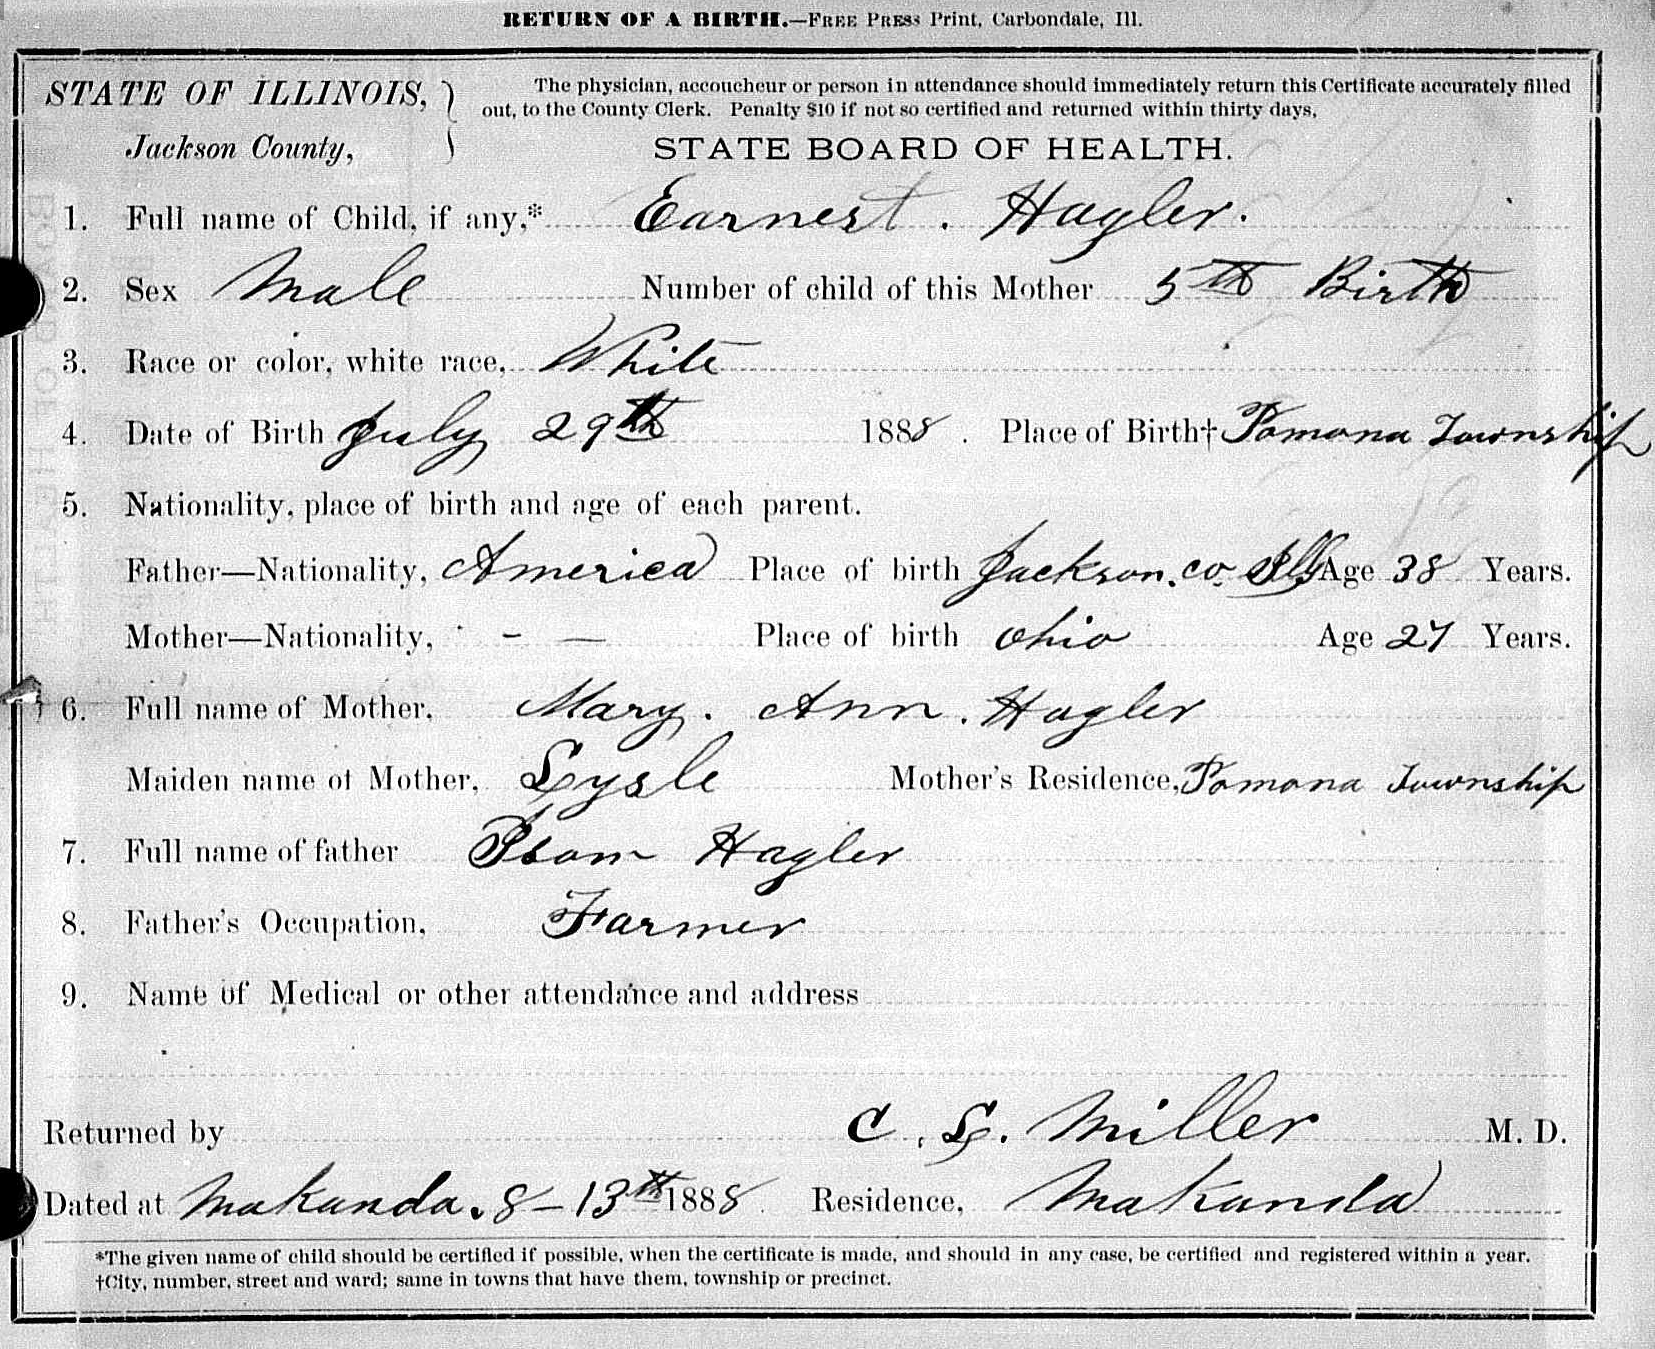 RETURN OF A BIRTH.—FREE PRESS Print, Carbondale, Ill.
STATE OF ILLINOIS, }
Jackson County,
The physician, accoucheur or person in attendance should immediately return this Certificate accurately filled
out, to the County Clerk. Penalty $10 if not so certified and returned within thirty days.
STATE BOARD OF HEALTH.
1. Full name of Child, if any,* Earnest. Hagler.
2. Sex Male Number of child of this Mother 5th Birth
3. Race or color, white race, White
4. Date of Birth July 29th 1888. Place of Birth† Pomona Township
5. Nationality, place of birth and age of each parent.
Father—Nationality, America Place of birth Jackson. co. Ills Age 38 Years.
Mother—Nationality, - — Place of birth Ohio Age 27 Years.
6. Full name of Mother, Mary. Ann. Hagler
Maiden name of Mother, Lysle Mother's Residence, Pomona Township
7. Full name of father Isom Hagler
8. Father's Occupation, Farmer
9. Name of Medical or other attendance and address
Returned by C. L. Miller M. D.
Dated at Makanda. 8-13th 1888. Residence, Makanda
*The given name of child should be certified if possible, when the certificate is made, and should in any case, be certified and registered within a year.
†City, number, street and ward; same in towns that have them, township or precinct.